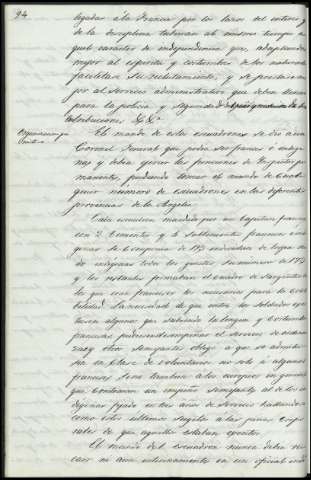 94
ligadas á la Francia por los lazos del interes y
de la disciplina tubieran al mismo tiempo a
quel carácter de independencia que, adaptandose
mejor al espiritu y costumbres de los naturales
facilitase su reclutamiento, y se prestase me
jor al servicio administrativo que deben llenar
para la policia y seguridad
tribuciones &.&ª
Organizacion
El mando de estos escuadrones se dió á un
Coronel General que podia ser frances ó indige
na y debia ejercer las funciones de Inspector per
manente, pudiendo tomar el mando de cual
quier numero de escuadrones en las diferentes
provincias de la Argelia.
Cada escuadron mandado por un Capitan frances
con 2 Tenientes y 4 Subtenientes franceses é in
genas se componia de 193 individuos de tropa sien
do indigenas todos los ginetes en numero de 173
y los restantes formaban el cuadro de Sargentos de
los que seis franceses los necesarios para la Conta
bilidad. La necesidad de que entre los soldados exis
tiesen algunos que sabiendo la lengua y costumbres
francesas pudiesen desempeñar el servicio de ordenan
zas y otros semejantes obligó á que se admitie
sen en clase de voluntarios no solo á algunos
franceses sino tambien á los europeos en general
que contraian un empeño semejante al de los in
digenas fijado en tres años de servicio hallandose
como estos ultimos sugetos á las penas corpo
rales de que aquellos estaban exentos.
El mando del escuadron nunca debia re
caer ni aun interinamente en un oficial indi